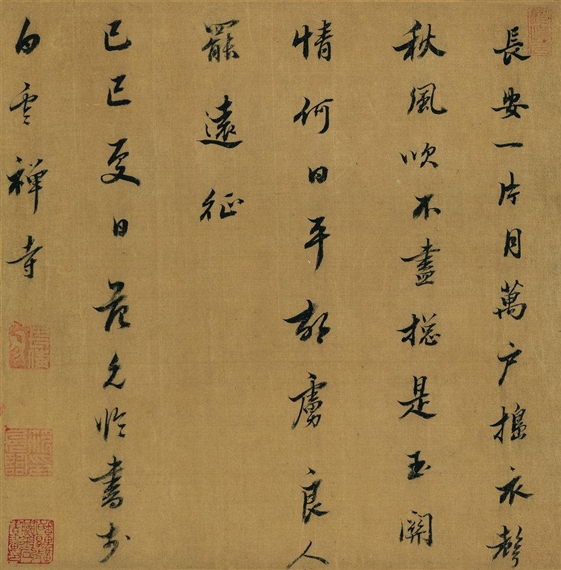 長安一片月萬戶擣衣聲
秋風吹不盡揔是玉關
情何日平胡虜良人
罷遠征
己巳夏日范允臨書於
白雲禪寺